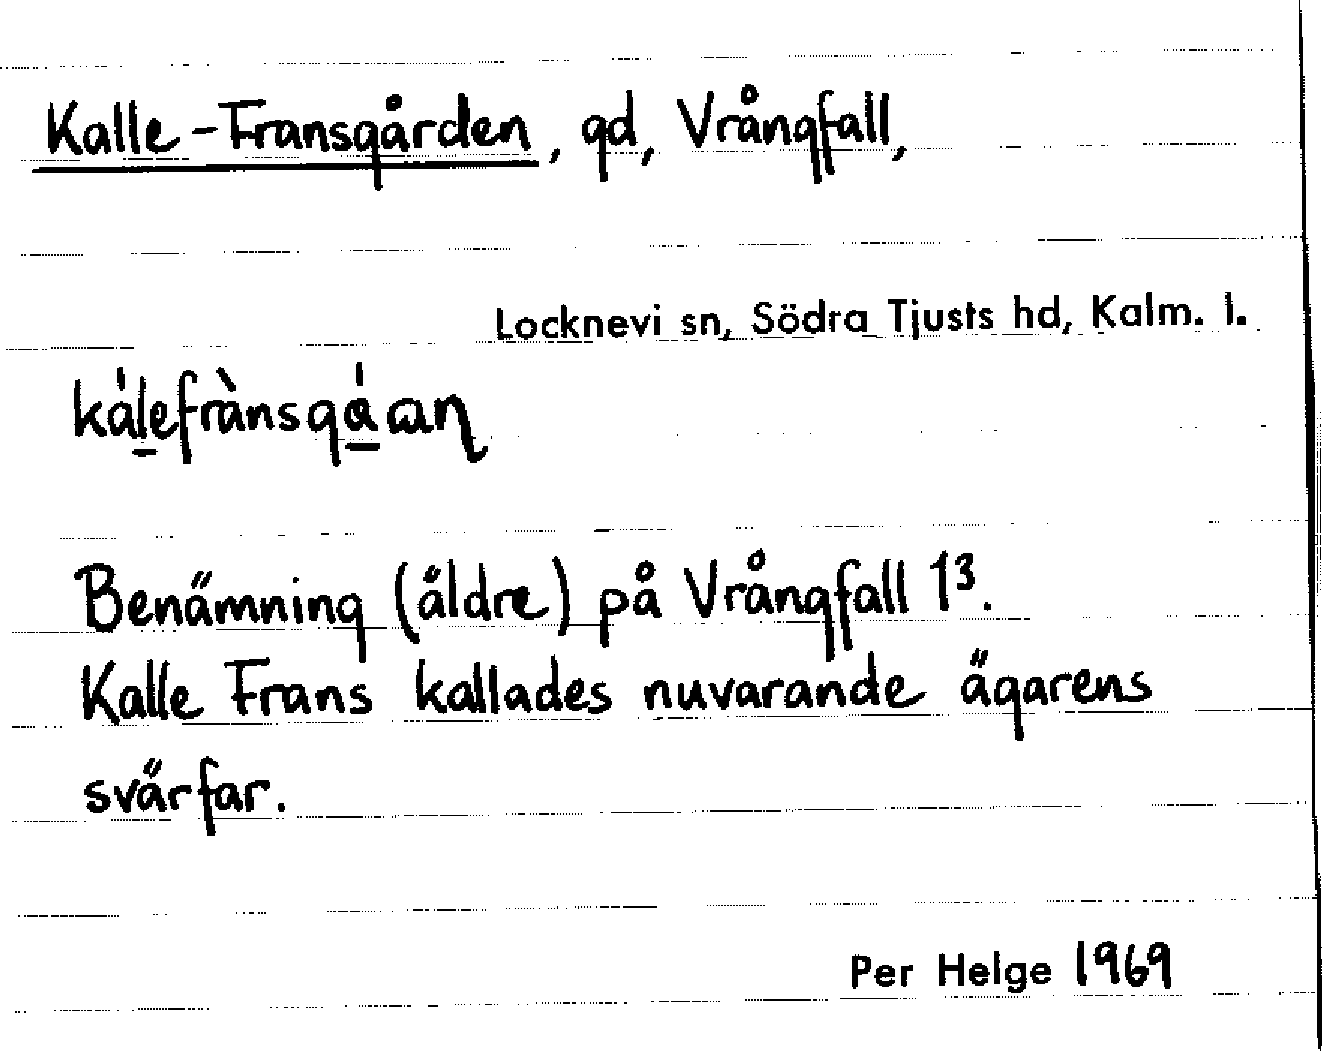 Kalle-Fransgården, gd, Vrångfall,
Locknevi sn, Södra Tjusts hd, Kalm. l.
Benämning (äldre) på Vrångfall 1³.
Kalle Frans kallades nuvarande ägarens
svärfar.
Per Helge 1969